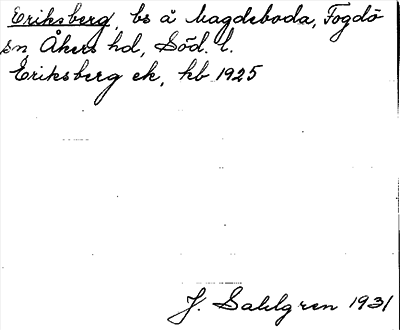 Eriksberg, bs å Magdeboda, Fogdö
sn Åkers hd, Söd. l.
Eriksberg ek, kb 1925
J. Sahlgren 1931